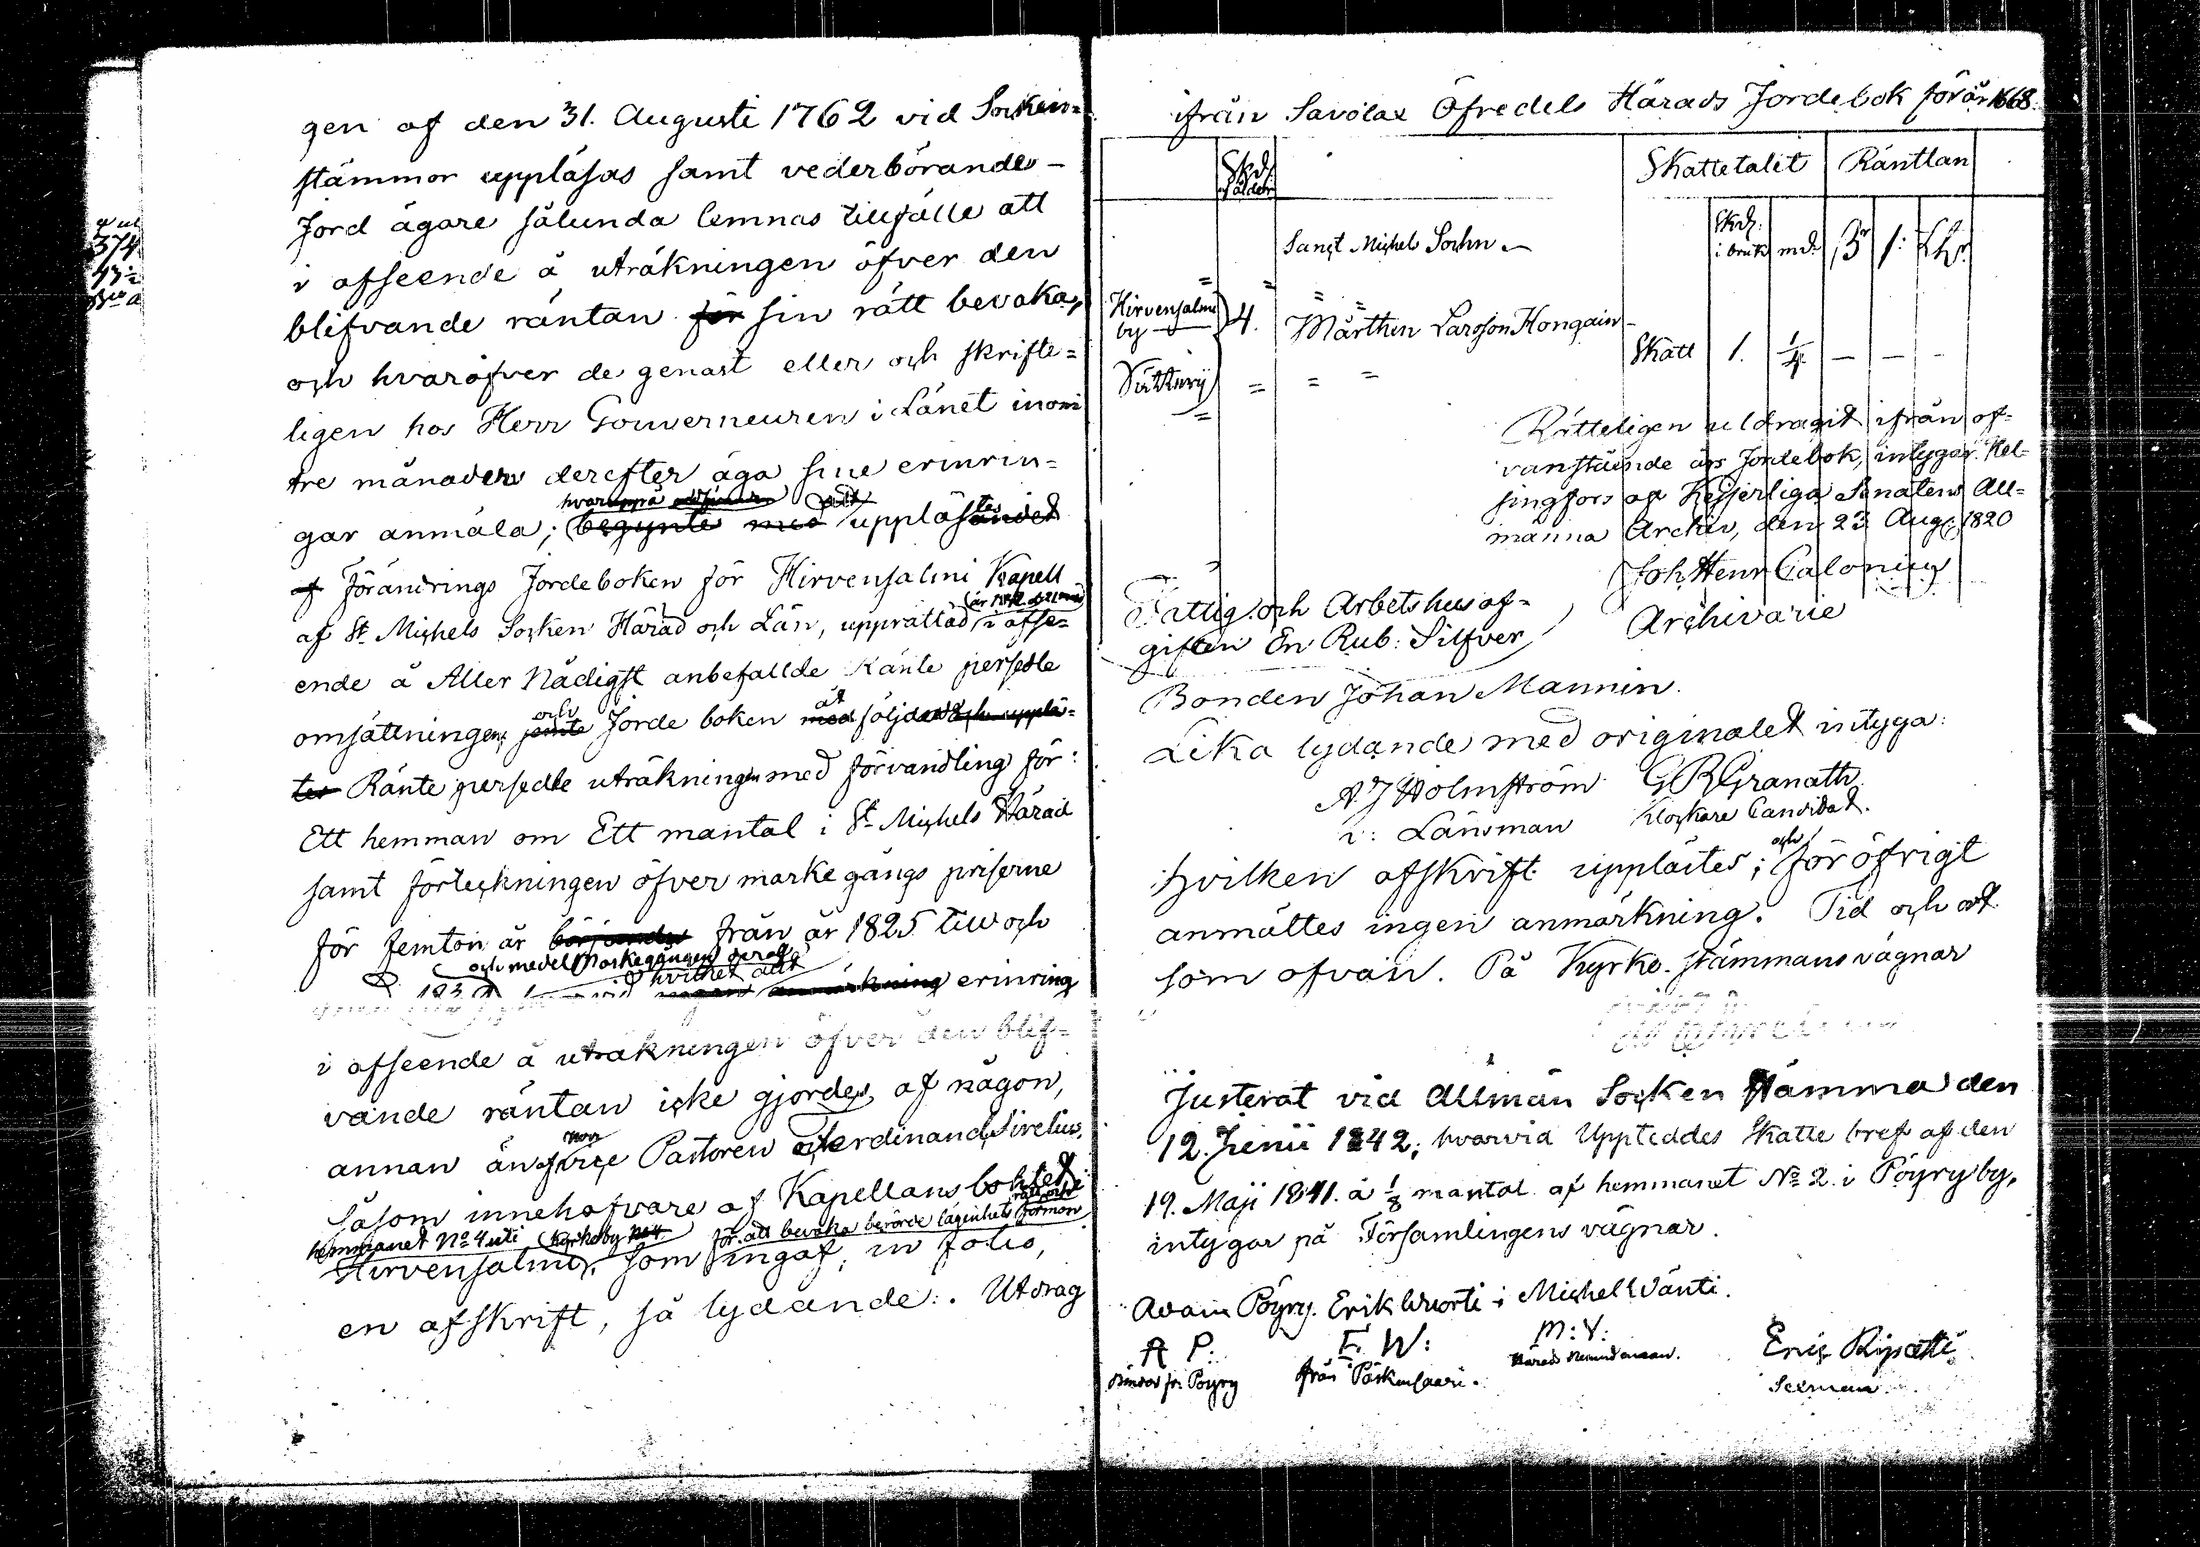 gen af den 31. Augusti 1762 vid Socken-
stämmor uppläsas samt vederbörande
Jord ägare sålunda lemnas tillfälle att
i afseende å uträkningen öfver den
blifvande räntan för sin rätt bevaka,
och hvaröfver de genast eller och skrifte=
ligen hos Herr Gouverneuren i Länet inom
tre månader derefter äga sine erinrin=
hvaruppå
gar anmäla; begynte med uppläsandet
af Förändrings Jordeboken för Hirvensalmi Kapell
af St Michels Socken Härad och Län, upprättad i afse=
ende å Aller Nådigst anbefallde Ränte persedle
och
omsättningen; jemte Jorde boken med följd och upplä=
tes Ränte persedle uträkningen med förvandling för:
Ett hemman om Ett mantal i St Michels Härad
samt förteckningen öfver markegångs priserne
för femton år började från år 1825 till och
och medel Markegången
hvilket allt
anmärkning erinring
i afseende å uträkningen öfver den blif=
vande räntan icke gjordes af någon,
annan än vice Pastoren Ferdinand Sirelius,
såsom innehafvare af Kapellans bohlet
rätt och
hemmanet No 4 uti Kyrkoby No 4 för att bevaka berörde lägenhets förmon
Hirvensalmi, som ingaf, in folio,
en afskrift, så lydande: Utdrag
374
ifrån Savolax Öfredels Härads Jordebok för år 1668.
Skattetalit Räntlan
Sanct Michels Sochn
i bruk md.
Hirvensalmi
by 4. Mårthen Larsson Hongain
Skatt 1. 1/4 - - -
Rätteligen utdragit ifrån of=
vanstående års Jordebok, intygar. Hel=
singfors af Kejserliga Senatens All=
männa Archiv, den 23 Aug. 1820
Joh Henr Calonius
Archivarie
Fattig och Arbetshus af=
giften En Rub: Silfver
Bonden Johan Mannin.
Lika lydande med originalet intyga:
A J Holmström G R Granath
v: Länsman Klockare Candidat.
och
hvilken afskrift upplästes; för öfrigt
anmältes ingen anmärkning. Tid och ort
som ofvan. På Kyrko-stämmans vägnar
Justerat vid Allmän Socken Stämma den
12 Junii 1842; hvarvid Uppteddes Skatte bref af den
19. Maji 1841. å 1/8 mantal af hemmanet No 2. i Pöyry by,
intygar på Församlingens vägnar.
Adam Pöyry. Erik Wuorti i Michell Vänti.
A P: E W: M: V:
Bonde fr. Pöyry från Päskensaari. Härads Nämndeman. Eric Ripatti